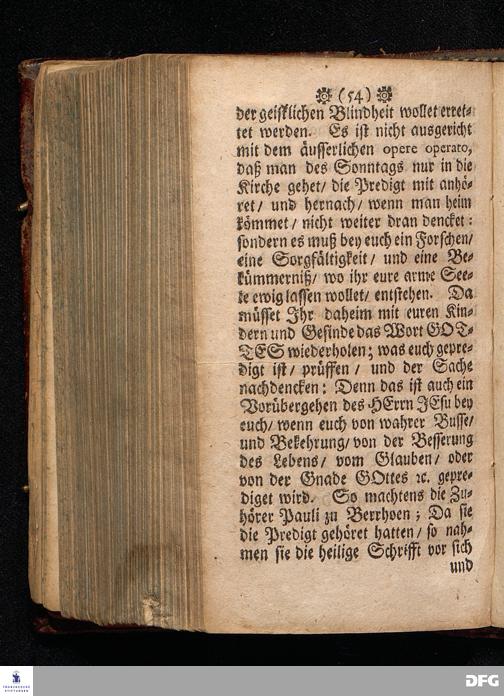 (54)
der geistlichen Blindheit wollet erret-
tet werden. Es ist nicht ausgericht
mit dem äusserlichen opere operato,
daß man des Sonntags nur in die
Kirche gehet/ die Predigt mit anhö-
ret/ und hernach/ wenn man heim
kömmet/ nicht weiter dran dencket:
sondern es muß bey euch ein Forschen/
eine Sorgfältigkeit/ und eine Be-
kümmerniß/ wo ihr eure arme See-
le ewig lassen wollet/ entstehen. Da
müsset Ihr daheim mit euren Kin-
dern und Gesinde das Wort GOT-
TES wiederholen; was euch gepre-
digt ist/ prüffen/ und der Sache
nachdencken: Denn das ist auch ein
Vorübergehen des HErrn JEsu bey
euch/ wenn euch von wahrer Busse/
und Bekehrung/ von der Besserung
des Lebens/ vom Glauben/ oder
von der Gnade GOttes ꝛc. gepre-
diget wird. So machtens die Zu-
hörer Pauli zu Berrhoen; Da sie
die Predigt gehöret hatten/ so nah-
men sie die heilige Schrifft vor sich
und
FRANCKESCHE
STIFTUNGEN
DFG